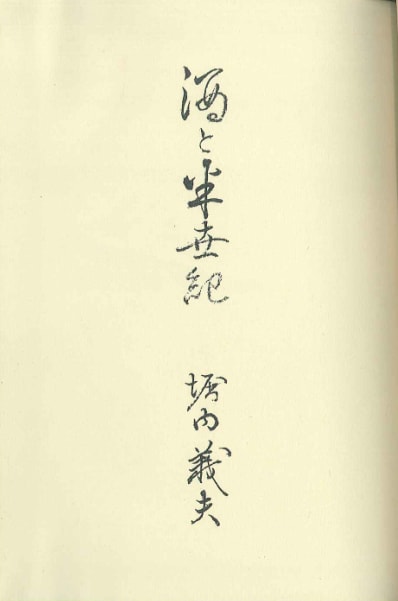 酒と半世紀
堀内義夫